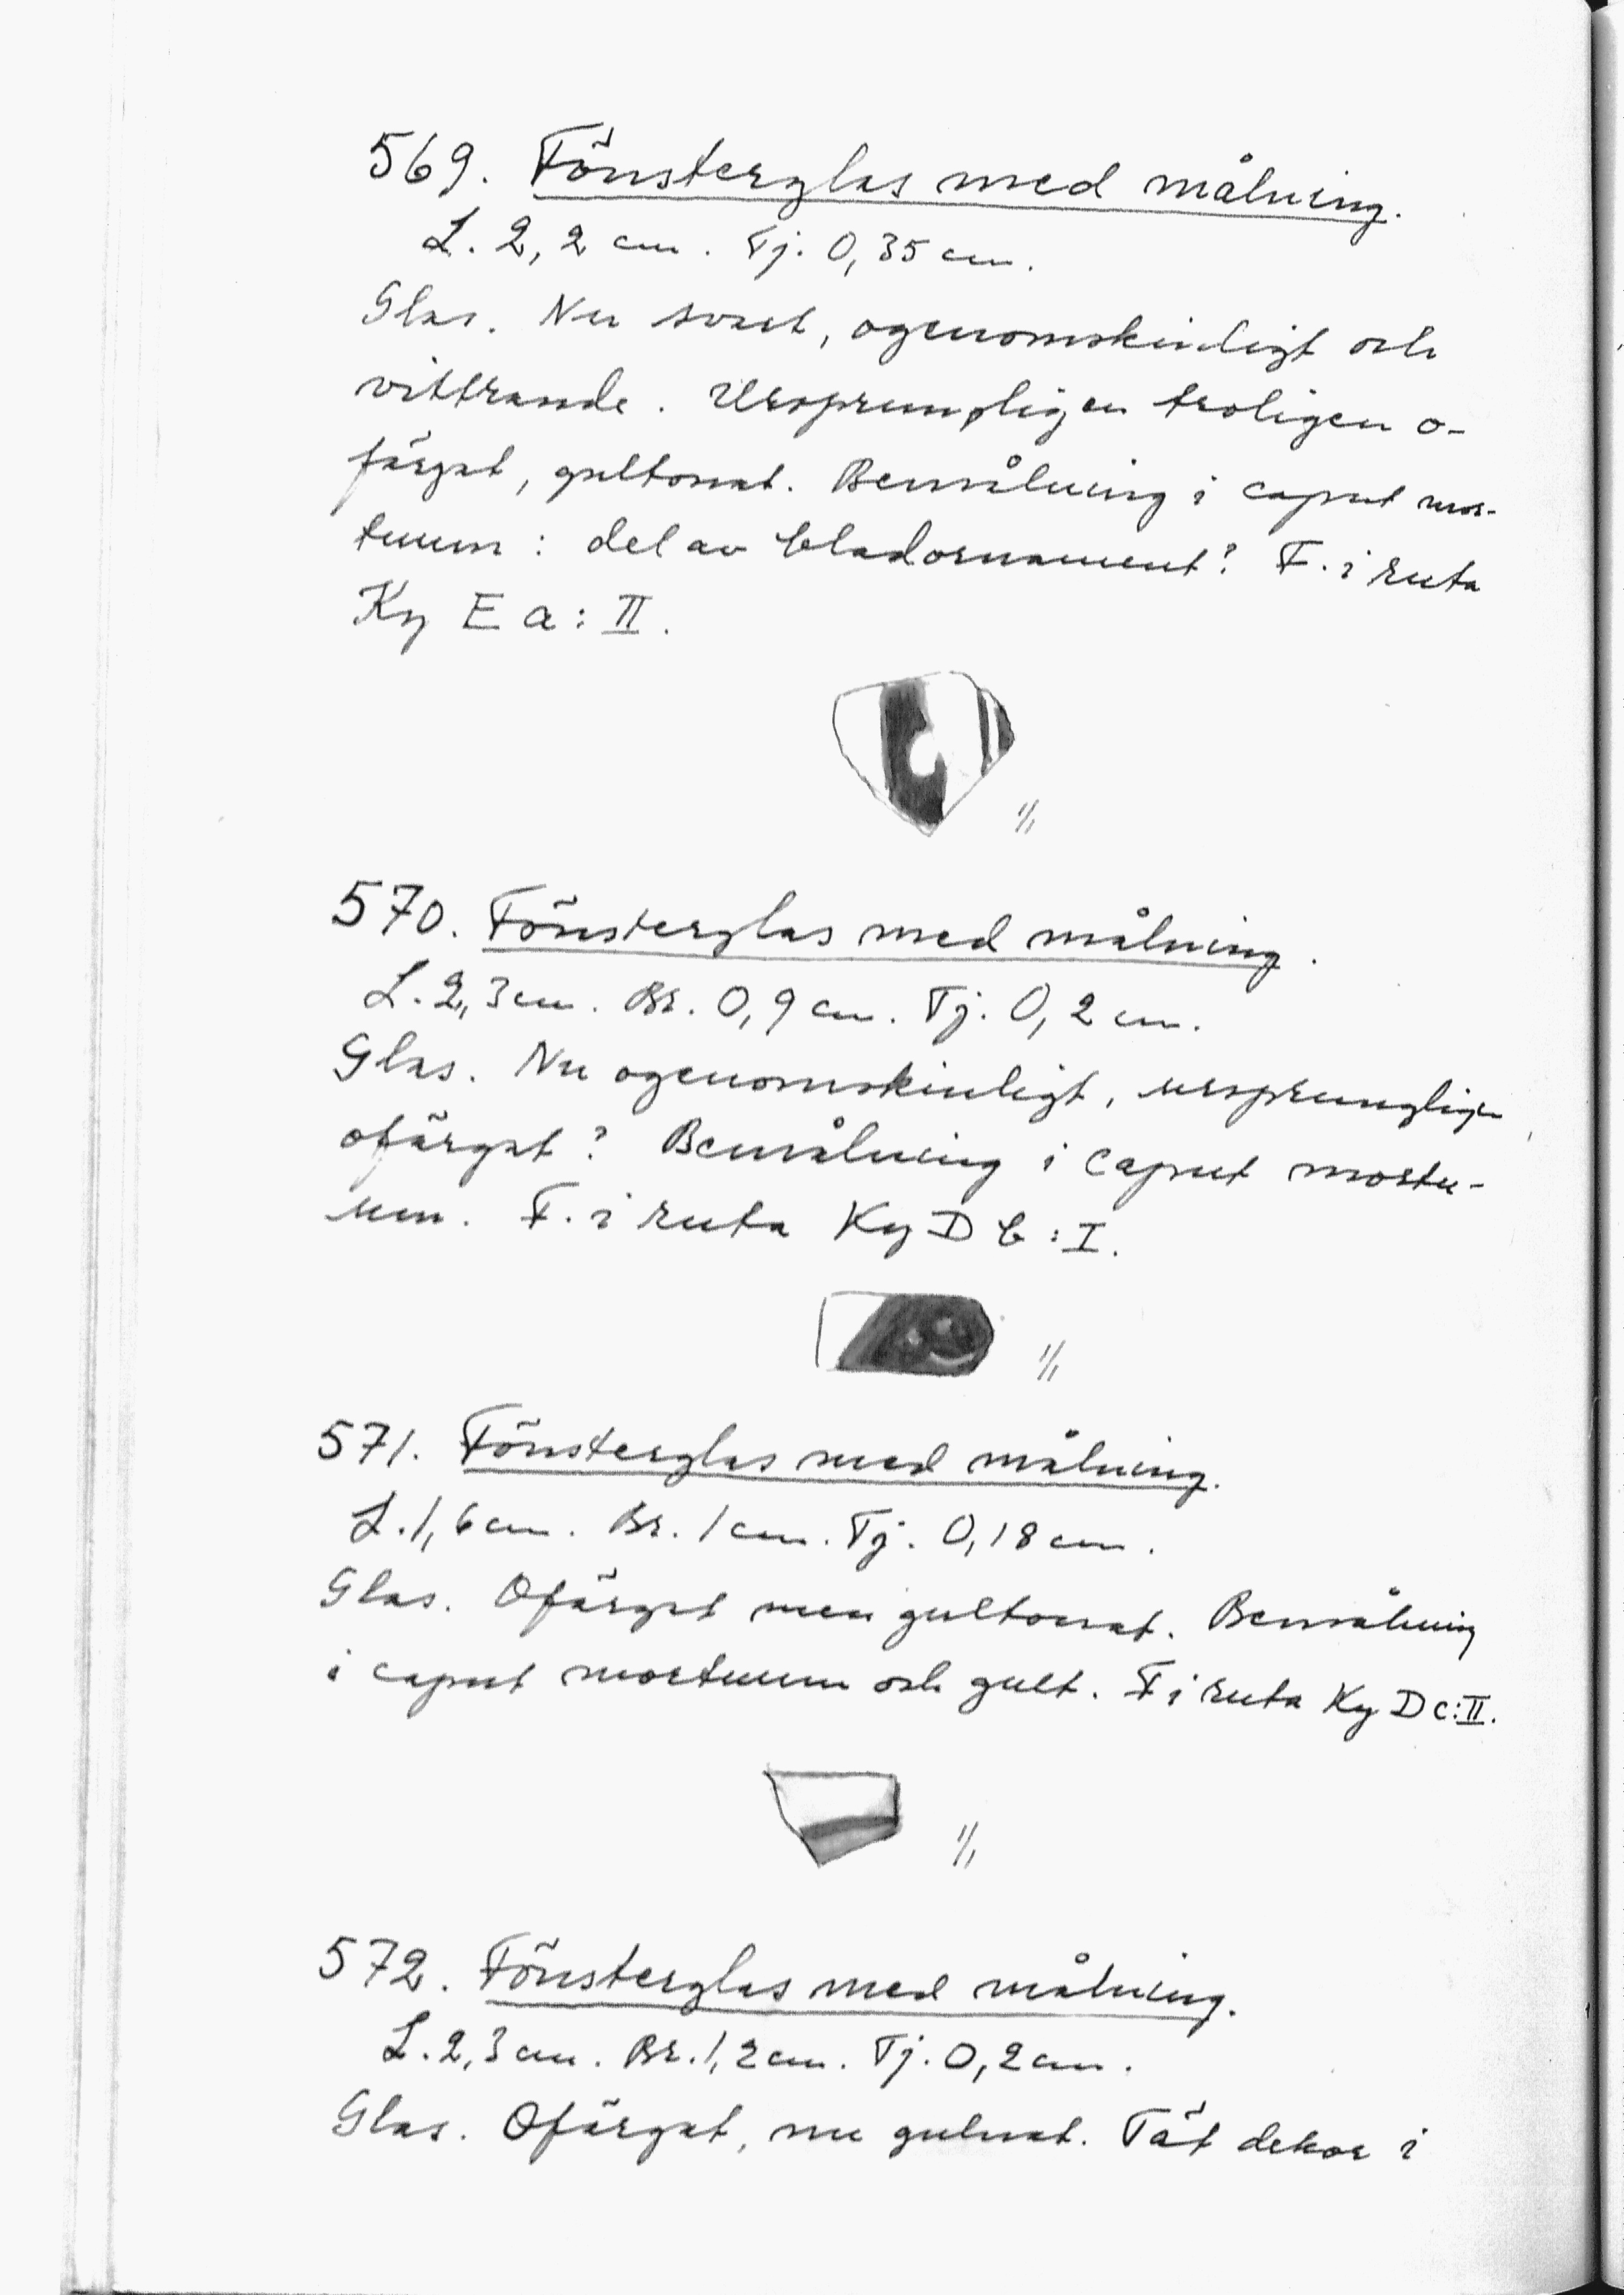 569. Fönsterglas med målning.
L. 2,2 cm. Tj. 0,35 cm.
Glas. Nu svart, ogenomskinligt och
vittrande. Ursprungligen troligen o-
färgat, gultonat. Bemålning i caput mor-
tuum: del av bladornament? F. i ruta
Ky E a: II.
1/1
570. Fönsterglas med målning.
L. 2,3 cm. Br. 0,9 cm. Tj. 0,2 cm.
Glas. Nu ogenomskinligt, ursprungligen
ofärgat? Bemålning i caput mortu-
um. F. i ruta Ky D b: I.
1/1
571. Fönsterglas med målning.
L. 1,6 cm. Br. 1 cm. Tj. 0,18 cm.
Glas. Ofärgat men gultonat. Bemålning
i caput mortuum och gult. F i ruta Ky D c: II.
1/1
572. Fönsterglas med målning.
L. 2,3 cm. Br. 1,2 cm. Tj. 0,2 cm.
Glas. Ofärgat, nu gulnat. Tät dekor i